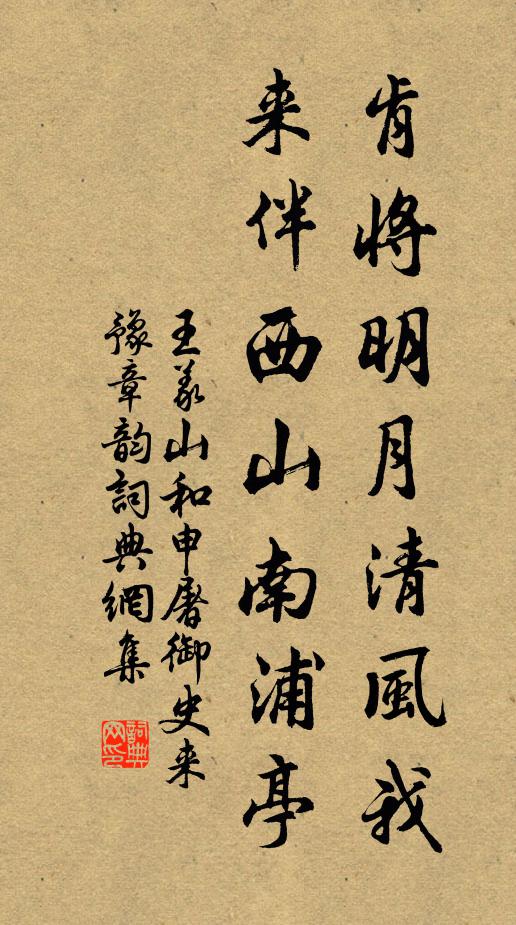 肯將明月清風我
来伴西山南浦亭
王義山和申屠御史来
豫章韵詞典網集
詞典
网印